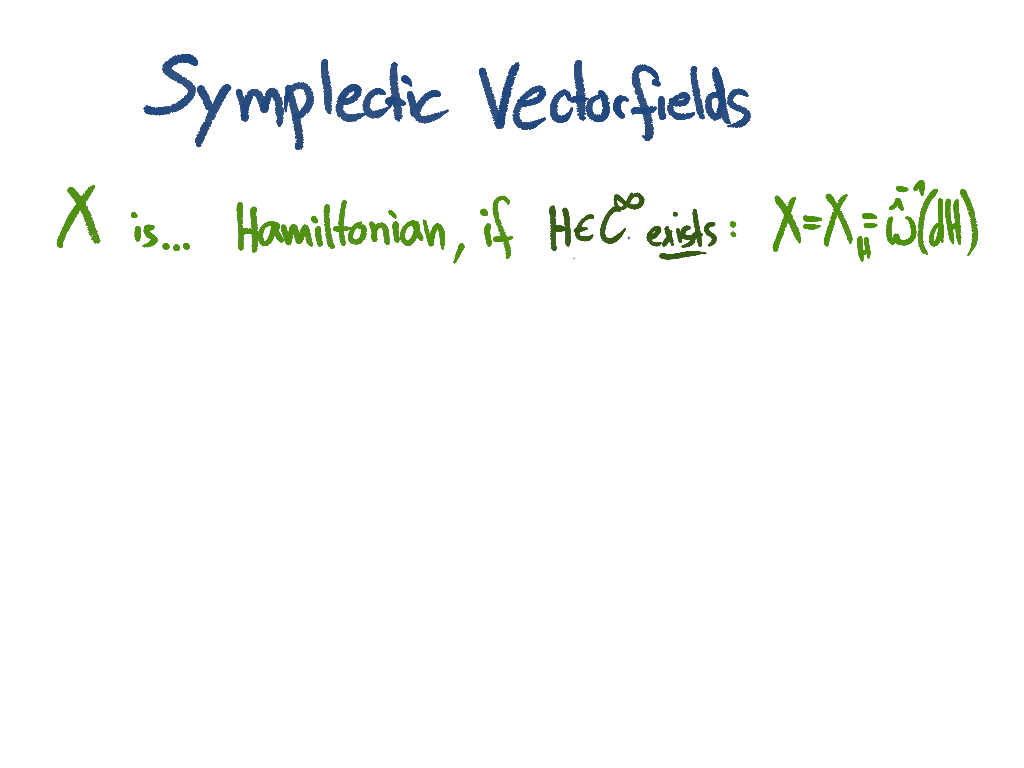 Symplectic Vectorfields
X is... Hamiltonian, if H∈C^∞ exists: X=X_H=ω̂^{-1}(dH)